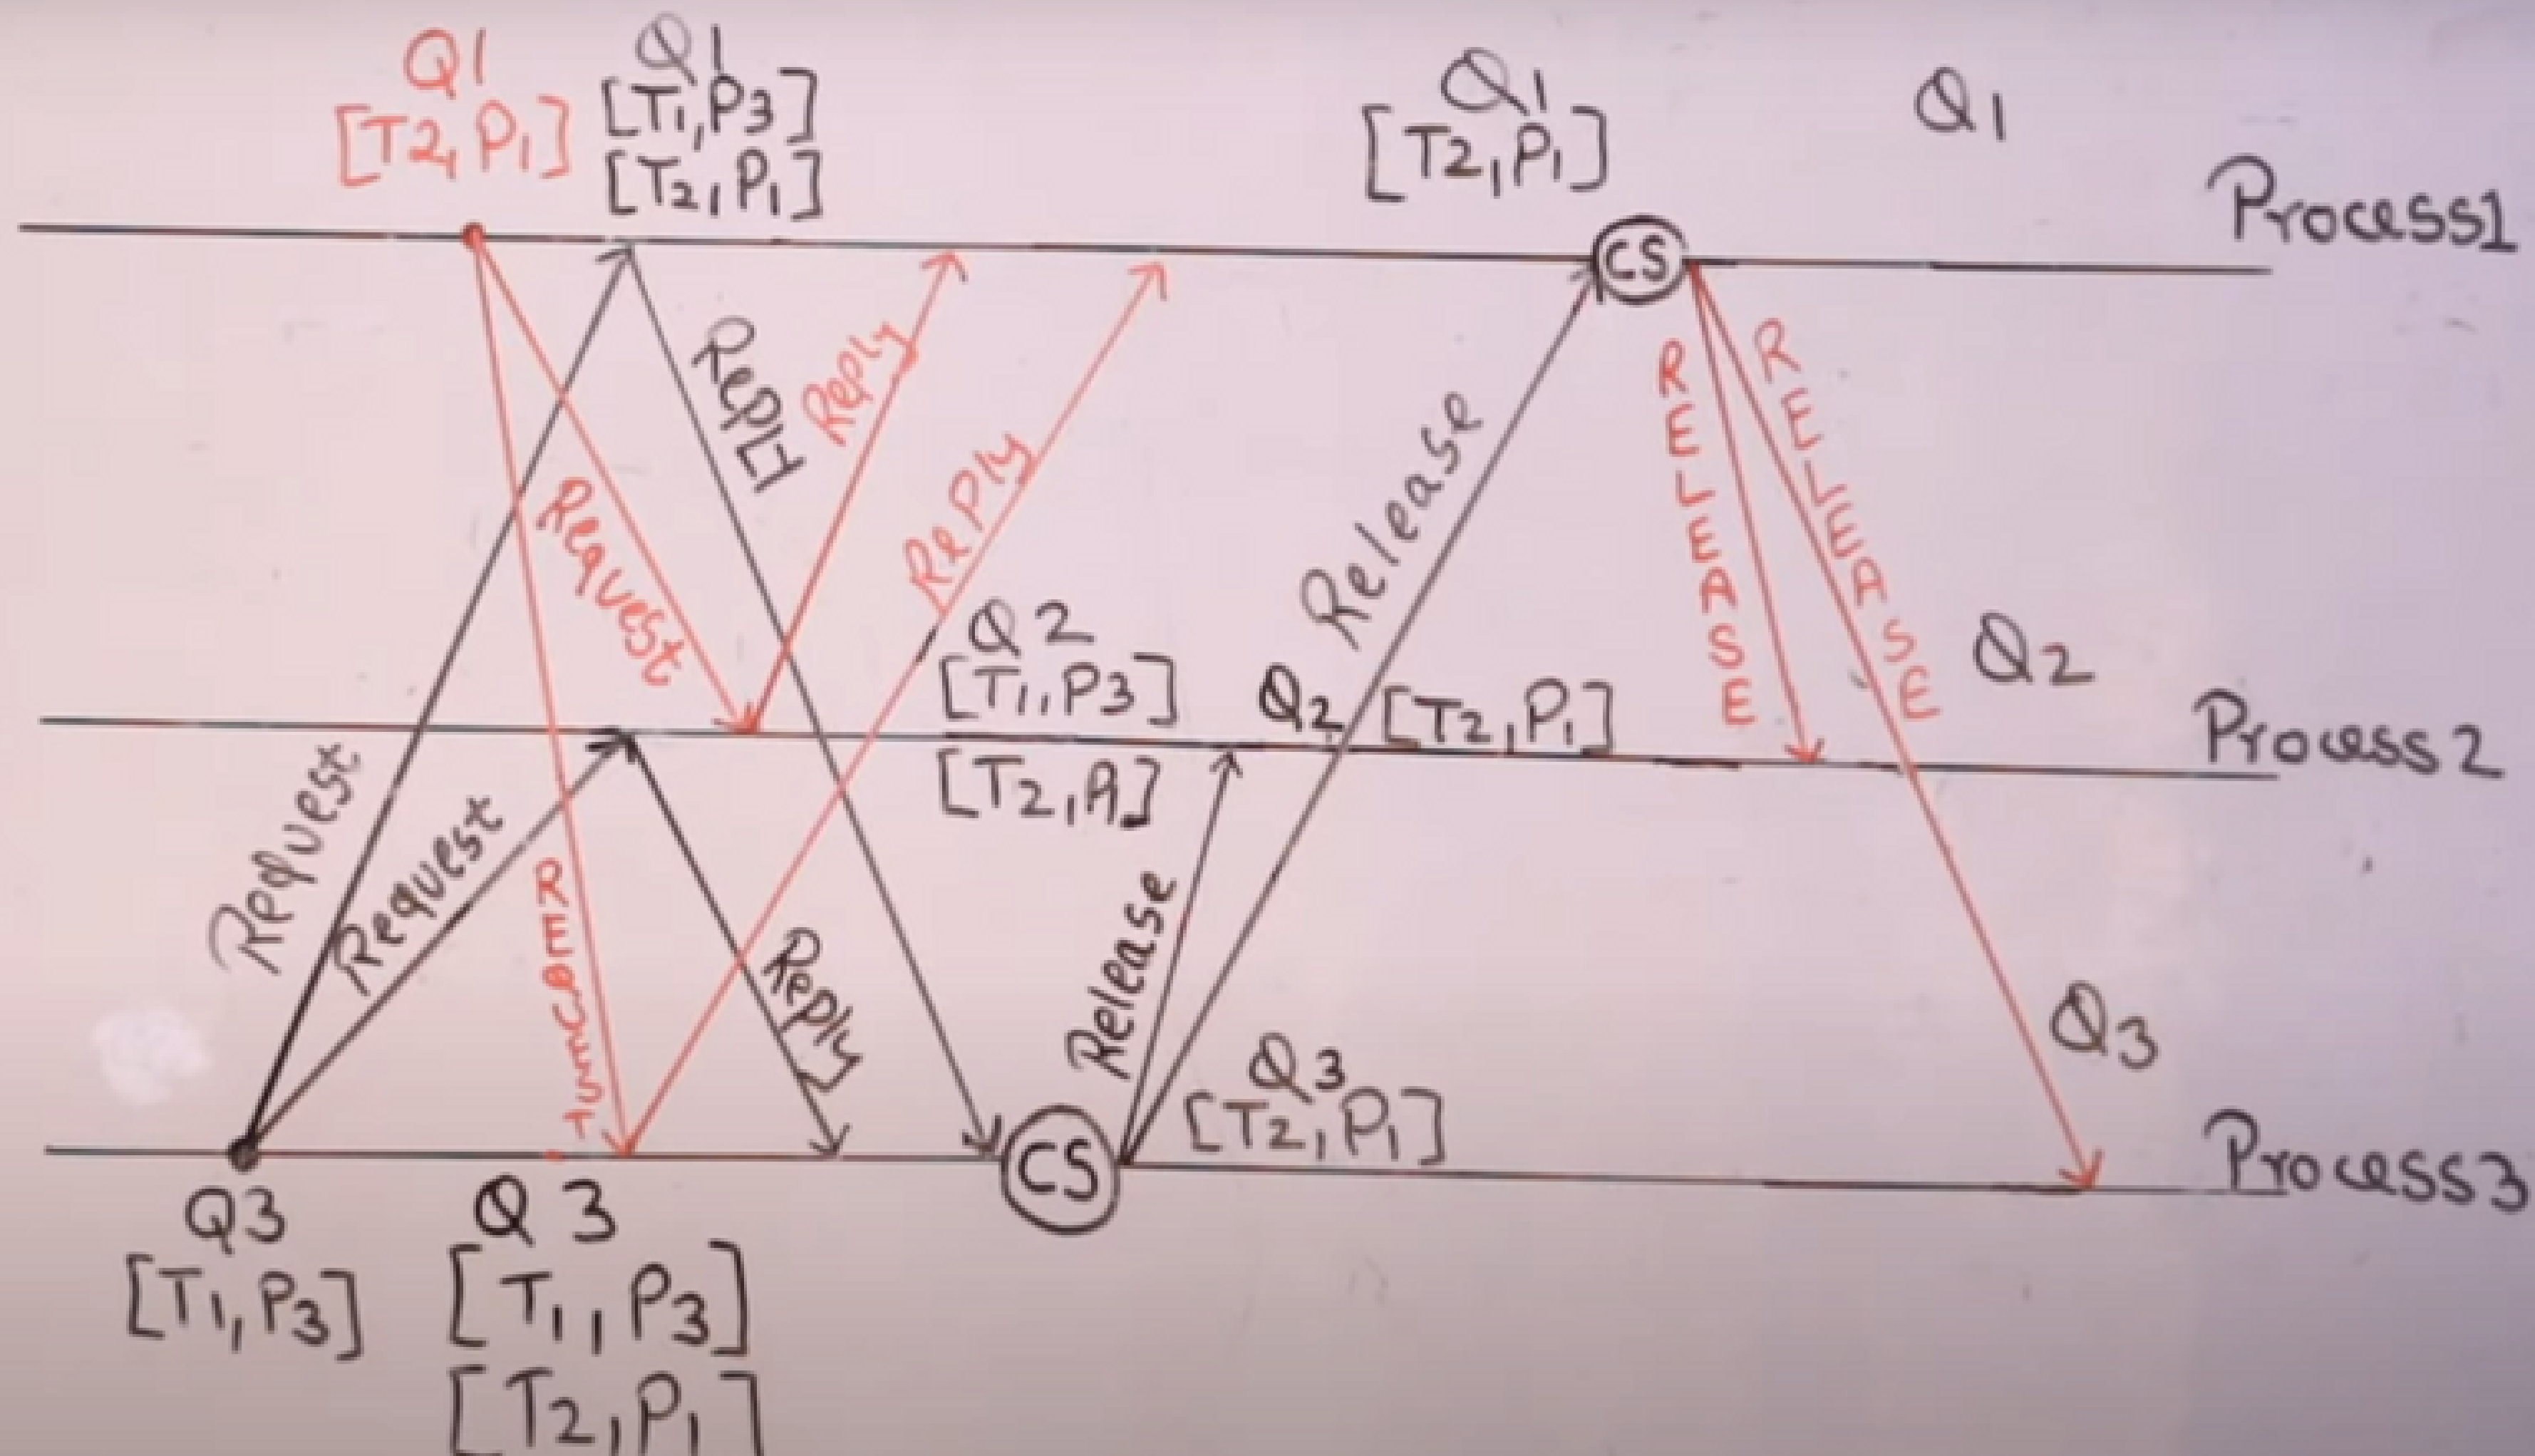 Q1
[T2,P1]
Q1
[T1,P3]
[T2,P1]
Q1
[T2,P1]
Q1
Process1
CS
Reply
Reply
Reply
Request
Release
RELEASE
RELEASE
Q2
[T1,P3]
[T2,P1]
Q2 [T2,P1]
Q2
Process2
Request
Request
REQUEST
Reply
Release
Q3
[T2,P1]
Q3
Process3
CS
Q3
[T1,P3]
Q3
[T1,P3]
[T2,P1]